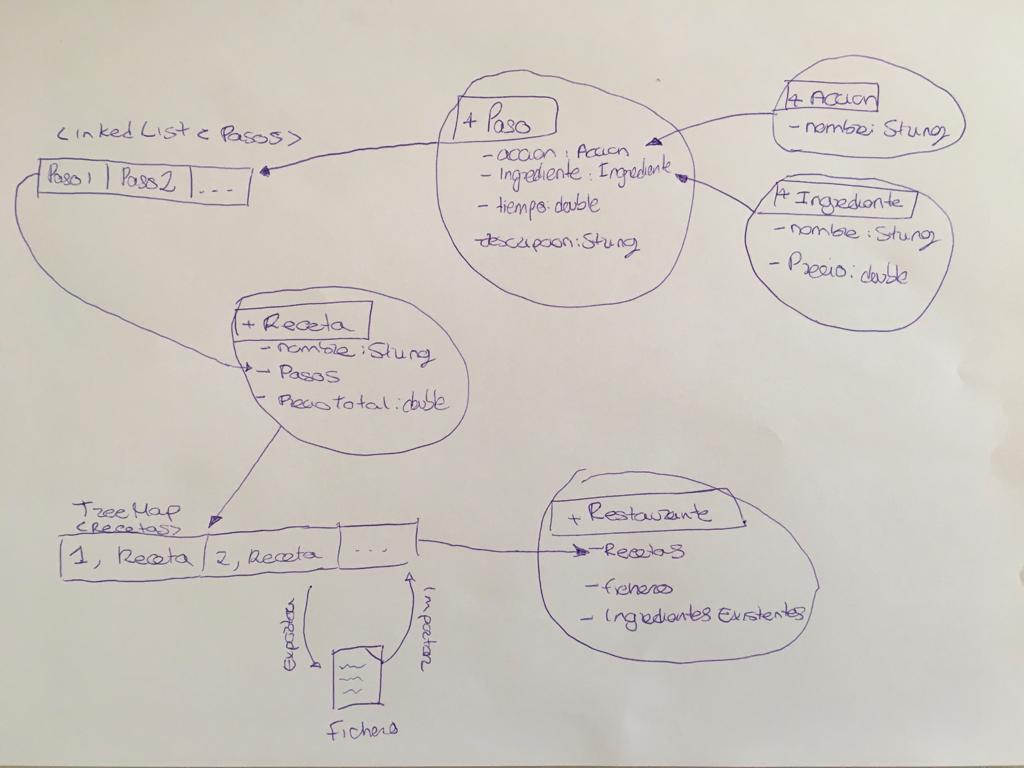 + Accion
- nombre: String
<LinkedList<Pasos>
+ Paso
- accion: Accion
- Ingrediente: Ingrediente
- tiempo: double
- descripcion: String
Paso1 | Paso2 | ...
+ Ingrediente
- nombre: String
- Precio: double
+ Receta
- nombre: String
- Pasos
- PrecioTotal: double
TreeMap
<Recetas>
1, Receta | 2, Receta | ...
+ Restaurante
- Recetas
- fichero
- Ingredientes Existentes
Exportar
Importar
fichero